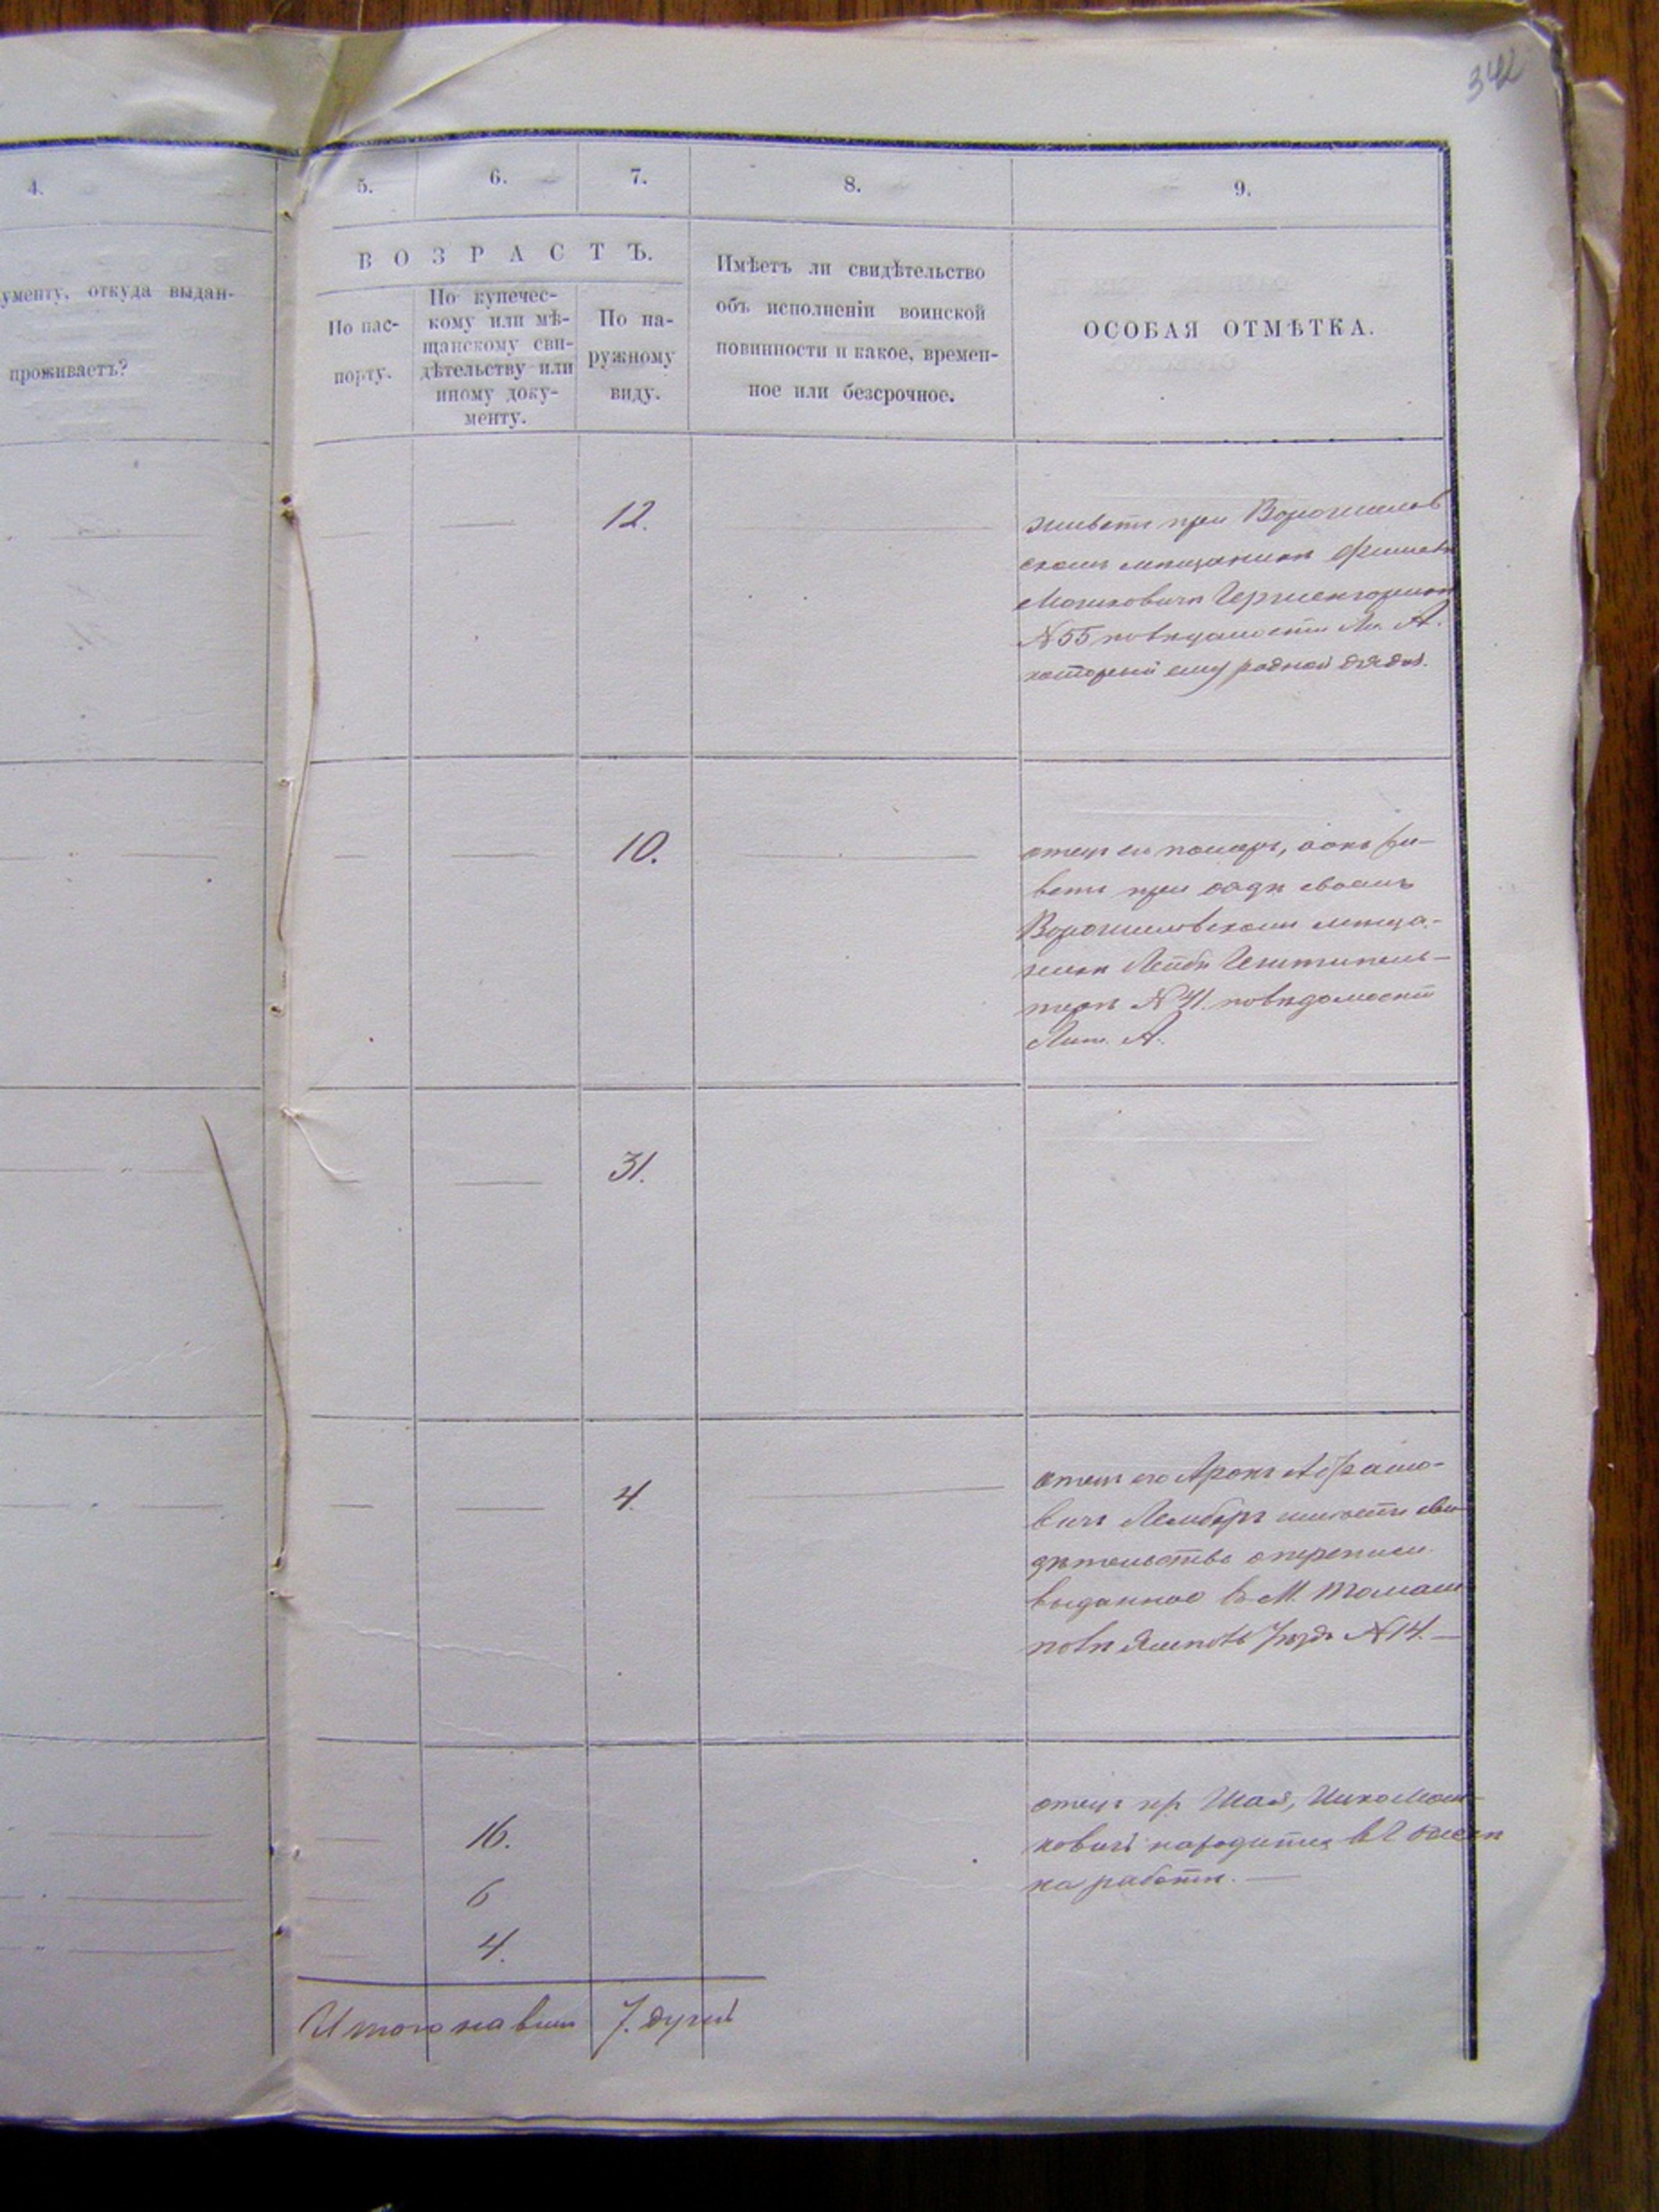 342
4.
5.
6.
7.
8.
9.
ументу, откуда выдан-
проживаетъ?
ВОЗРАСТЪ.
По пас-
порту.
По купечес-
кому или мѣ-
щанскому сви-
дѣтельству или
иному доку-
менту.
По на-
ружному
виду.
Имѣетъ ли свидѣтельство
объ исполненіи воинской
повинности и какое, времен-
ное или безсрочное.
ОСОБАЯ ОТМѢТКА.
12.
живетъ при Ворошилов
скомъ мѣщанинѣ
Мошковичѣ
№ 55 по вѣдомости Ли. А.
который ему родной дядя.
10.
отецъ его померъ, а онъ жи-
ветъ при дядѣ своемъ
Ворошиловскомъ мѣща-
нинѣ Лейбѣ
№ 41. по вѣдомости
Лит. А.
31.
4.
отецъ его Аронъ Абрамо-
вичъ имѣетъ сви
дѣтельство о переписи
выданное въ М.
№ 14.
16.
6
4.
отецъ ихъ
ковичъ находится въ Одессѣ
на работѣ.
Итого на внѣ 7. душъ